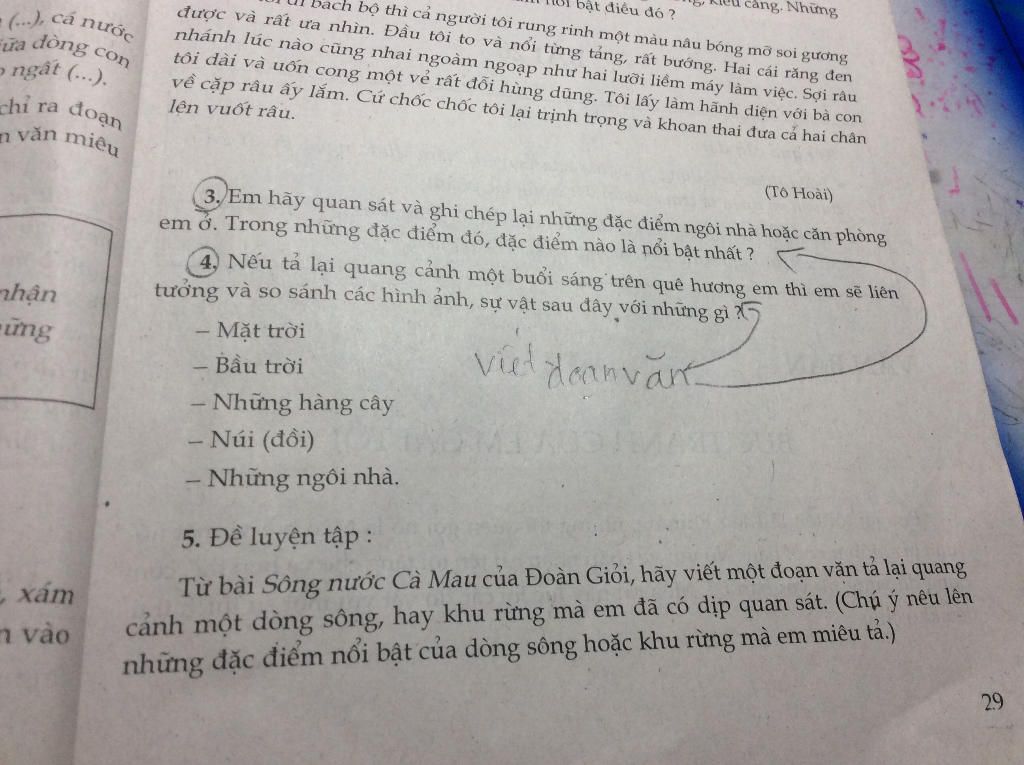 (...), cá nước
ữa dòng con
ngất (...).
chỉ ra đoạn
văn miêu
nhận
ững
, xám
vào
bách bộ thì cả người tôi rung rinh một màu nâu bóng mỡ soi gương
được và rất ưa nhìn. Đầu tôi to và nổi từng tảng, rất bướng. Hai cái răng đen
nhánh lúc nào cũng nhai ngoàm ngoạp như hai lưỡi liềm máy làm việc. Sợi râu
tôi dài và uốn cong một vẻ rất đỗi hùng dũng. Tôi lấy làm hãnh diện với bà con
về cặp râu ấy lắm. Cứ chốc chốc tôi lại trịnh trọng và khoan thai đưa cả hai chân
lên vuốt râu.
(Tô Hoài)
3. Em hãy quan sát và ghi chép lại những đặc điểm ngôi nhà hoặc căn phòng
em ở. Trong những đặc điểm đó, đặc điểm nào là nổi bật nhất ?
4. Nếu tả lại quang cảnh một buổi sáng trên quê hương em thì em sẽ liên
tưởng và so sánh các hình ảnh, sự vật sau đây với những gì ?
– Mặt trời
– Bầu trời
– Những hàng cây
– Núi (đồi)
– Những ngôi nhà.
viết đoạn văn
5. Đề luyện tập :
Từ bài Sông nước Cà Mau của Đoàn Giỏi, hãy viết một đoạn văn tả lại quang
cảnh một dòng sông, hay khu rừng mà em đã có dịp quan sát. (Chú ý nêu lên
những đặc điểm nổi bật của dòng sông hoặc khu rừng mà em miêu tả.)
29